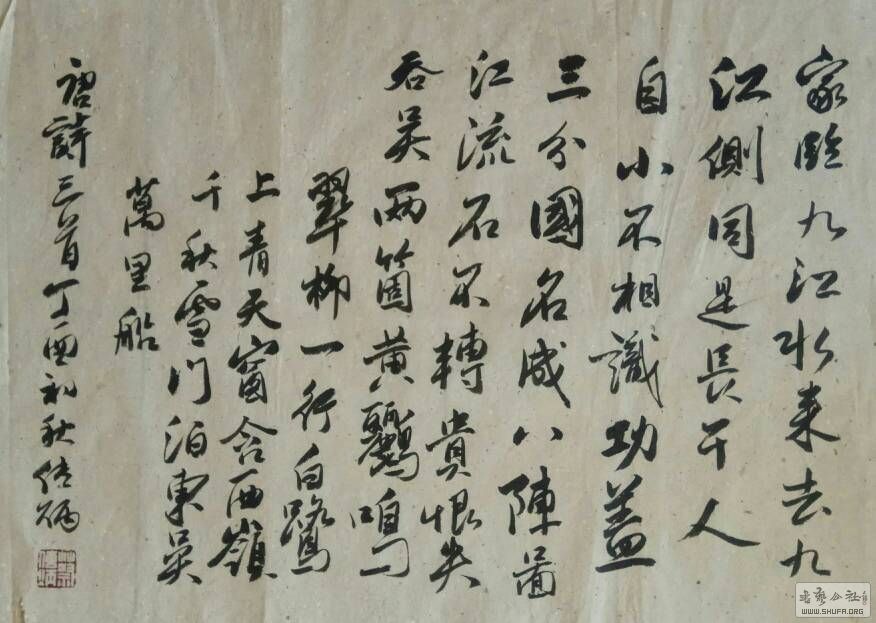 家臨九江水来去九
江側同是長干人
自小不相識功蓋
三分國名成八陳啚
江流石不轉貴恨失
吞吴兩箇黄鸝鳴
翠柳一行白鷺
上青天窗含西嶺
千秋雪门泊東吴
萬里船
唐詩三首丁酉初秋
WWW.SHUFA.ORG